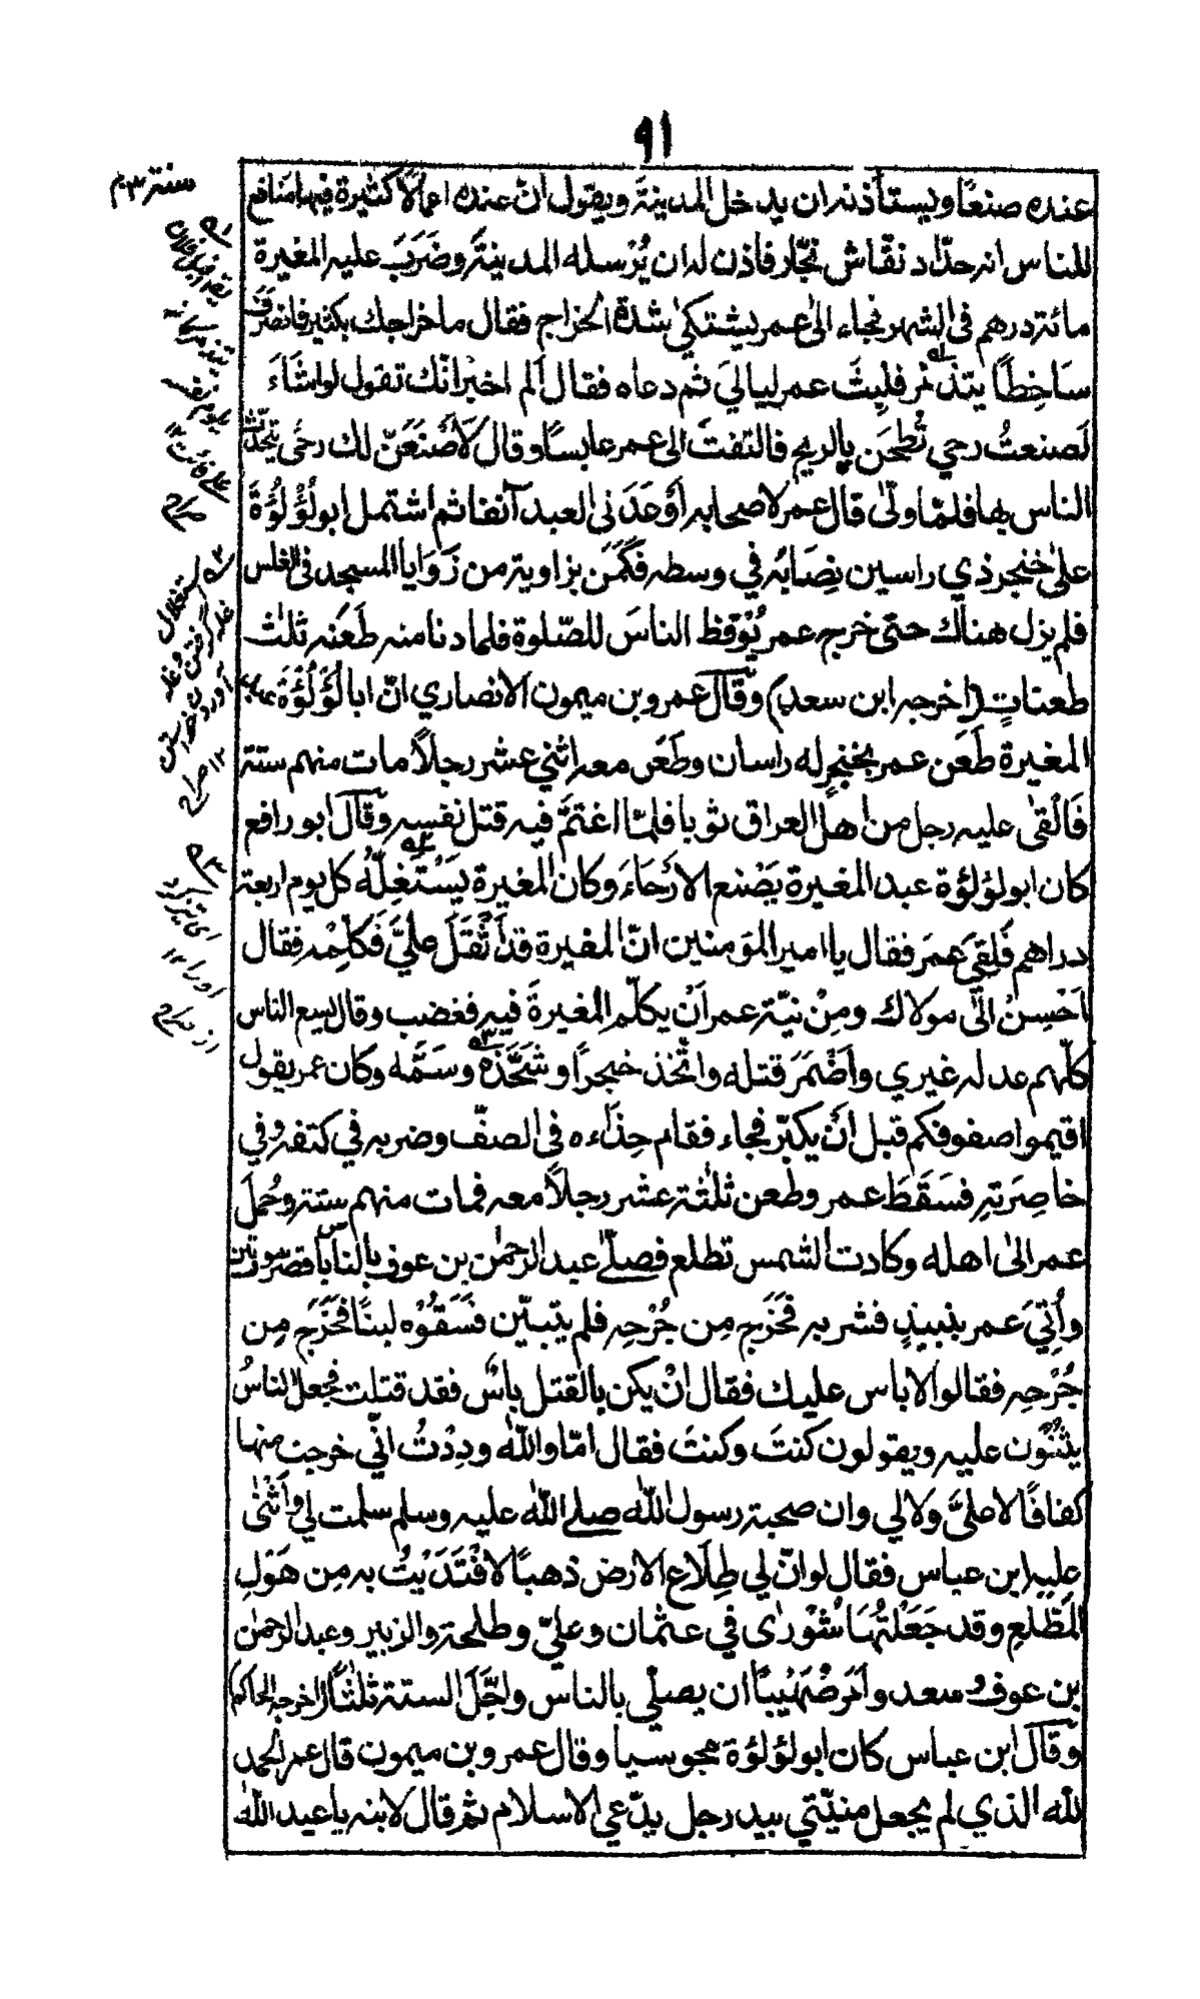 ٩١
عنده صنعًا ويستأذنه ان يدخل المدينة ويقول ان عنده اعمالًا كثيرة فيها منافع
للناس انه حدّاد نقّاش نجّار فاذن له ان يُرْسله المدينةَ وضَرَبَ عليه المغيرة
مائة درهم فى الشهر فجاء الىٰ عمر يشتكىٰ شدة الخراج فقال ما خراجك بكثير فانصرف
سَاخِطًا يتذمّر فلبِثَ عمر لياليَ ثم دعاه فقال اَلم اخبَرْ انّك تقول لو اشَاءَ
لَصنعتُ رحي تُطحَن بالريح فالتفتَ الى عمر عابسًا وقال لَاَصْنَعَنّ لك رحًى يتحدّث
الناس بها فلمّا ولّىٰ قال عمر لاصحابه اَوْعَدَنى العبد آنفا ثم اشتمل ابو لُؤْلُؤَةَ
علىٰ خنجر ذي راسين نِصَابُه في وسطه فكَمَن بزاوية من زَوَايا المسجد فى الغلس
فلم يزل هناك حتى خرج عمر يُوْقظ الناسَ للصّلوة فلما دنا منه طَعَنه ثلٰث
طعنات (اخرجه ابن سعد) وقَالَ عمرو بن ميمون الانصاري انّ ابا لُؤْلُؤَة عبد
المغيرة طَعَن عمر بخنجرٍ له راسان وطَعَن معه اثني عشر رجلًا مات منهم ستة
فَالْقىٰ عليه رجل من اهل العراق ثوبا فلمّا اغتمَّ فيه قتل نفسه وقَالَ ابو رافع
كان ابو لؤلؤة عبد المغيرة يَصْنع الارْحَاءَ وكان المغيرة يَسْتَغِلُّهُ كل يوم اربعة
دراهم فَلِقىَ عمَرَ فقال يا امير المؤمنين انّ المغيرة قد اَثْقَلَ عليَّ فَكلّمه فقال
اَحْسِنْ الىٰ مولاك ومِنْ نيّة عمر اَنْ يكلّم المغيرةَ فيه فغضب وقال يسع الناس
كلّهم عدله غيري واَضْمَرَ قتله واتّخذ خنجرًا وشَحَّذَهُ وسَمَّه وكان عمر يقول
اقيموا صفوفكم قبل اَنْ يكبّر فجاء فقام حِذَاءه فى الصفّ وضربه في كتفه وفي
خاصِرَتِه فسَقَطَ عمر وطعن ثلٰثة عشر رجلًا معه فمات منهم ستة وحُمل
عمر الىٰ اهله وكادت الشمس تطلع فصلّے عبد الرحمٰن بن عوف بالناس باَقصر سورتين
واُتِيَ عمر بنبيذٍ فشربه فخَرَج مِن جُرْحِه فلم يتبيّن فسَقَوْه لبنًا فخَرَج مِن
جُرْحِه فقالوا لا باس عليك فقال انْ يكن بالقتل باسٌ فقد قتلت فجعل الناسُ
يثنُوْن عليه ويقولون كنتَ وكنتَ فقال امّا واللّٰه ودِدْتُ انّي خرجت منها
كفافًا لا علىَّ ولا لي وان صحبة رسول اللّٰه صلے اللّٰه عليه وسلم سلمت لي واَثْنٰى
عليه ابن عباس فقال لو انّ لي طِلَاع الارض ذهبًا لافْتَدَيْتُ به مِن هَوْلِ
المطّلعِ وقد جَعَلْتُهَا شُوْرٰى في عثمان وعليّ وطلحة والزبير وعبد الرحمٰن
بن عوف وسعد واَمَرَ صُهَيْبًا ان يصلّي بالناس واجَّلَ الستة ثلٰثًا (اخرجه الحاكم)
وقَالَ ابن عباس كان ابو لؤلؤة مجوسيا وقال عمرو بن ميمون قال عمر الحمد
للّٰه الذي لم يجعل منيّتي بيد رجل يدّعي الاسلام ثم قال لابنه يا عبد اللّٰه